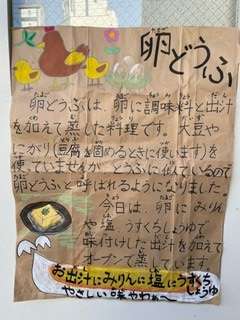 卵どうふ
卵どうふは、卵に調味料と出汁
を加えて蒸した料理です。大豆や
にがり(豆腐を固めるときに使います)を
使っていませんが、とうふに似ているので
卵どうふと呼ばれるようになりました。
今日は、卵にみりん
や塩、うすくちしょうゆで
味付けした出汁を加えて
オーブンで蒸しています。
お出汁にみりんに塩にうすくちしょうゆ
やさしい味やわぁ〜